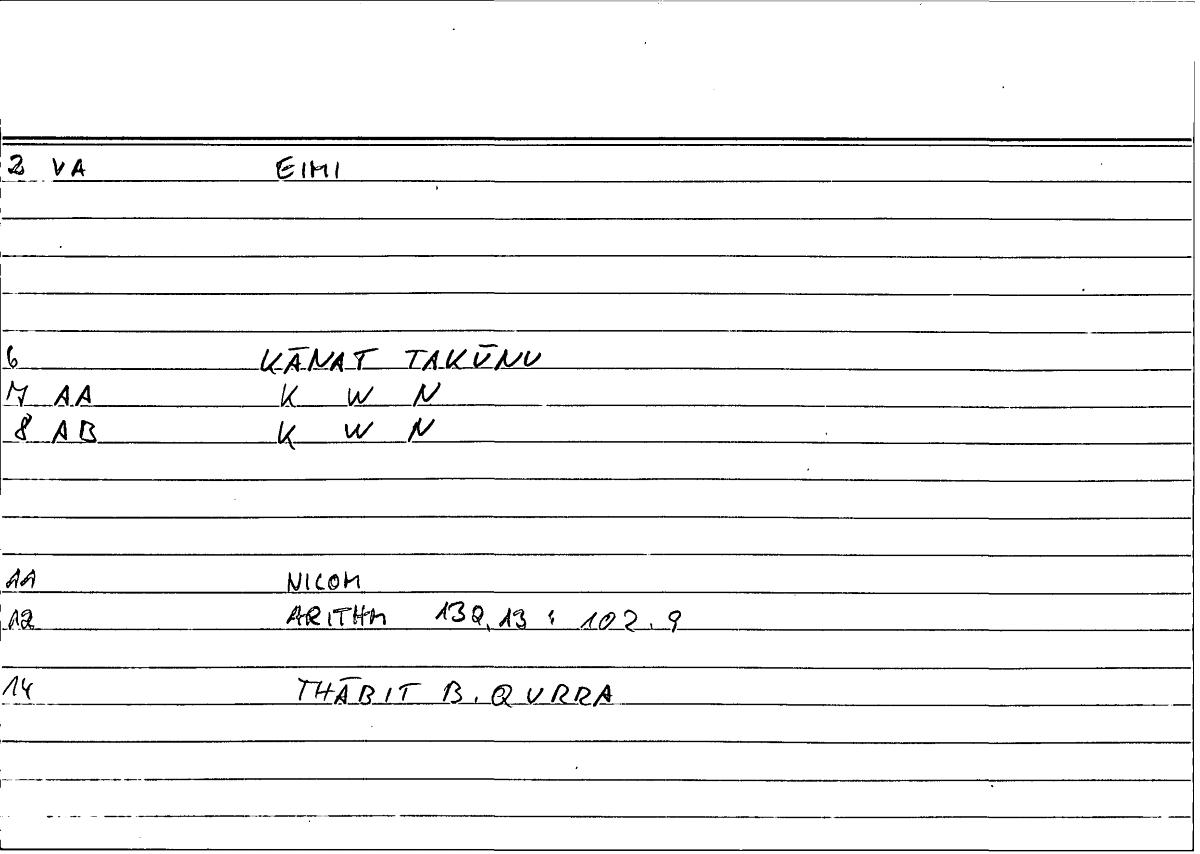 2 VA EIMI
6 KĀNAT TAKŪNU
7 AA K W N
8 AB K W N
11 NICOM
12 ARITHM 132,13 : 102.9
14 THĀBIT B. QURRA